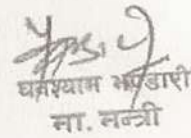 घनश्याम भण्डारी
मा. मन्त्री